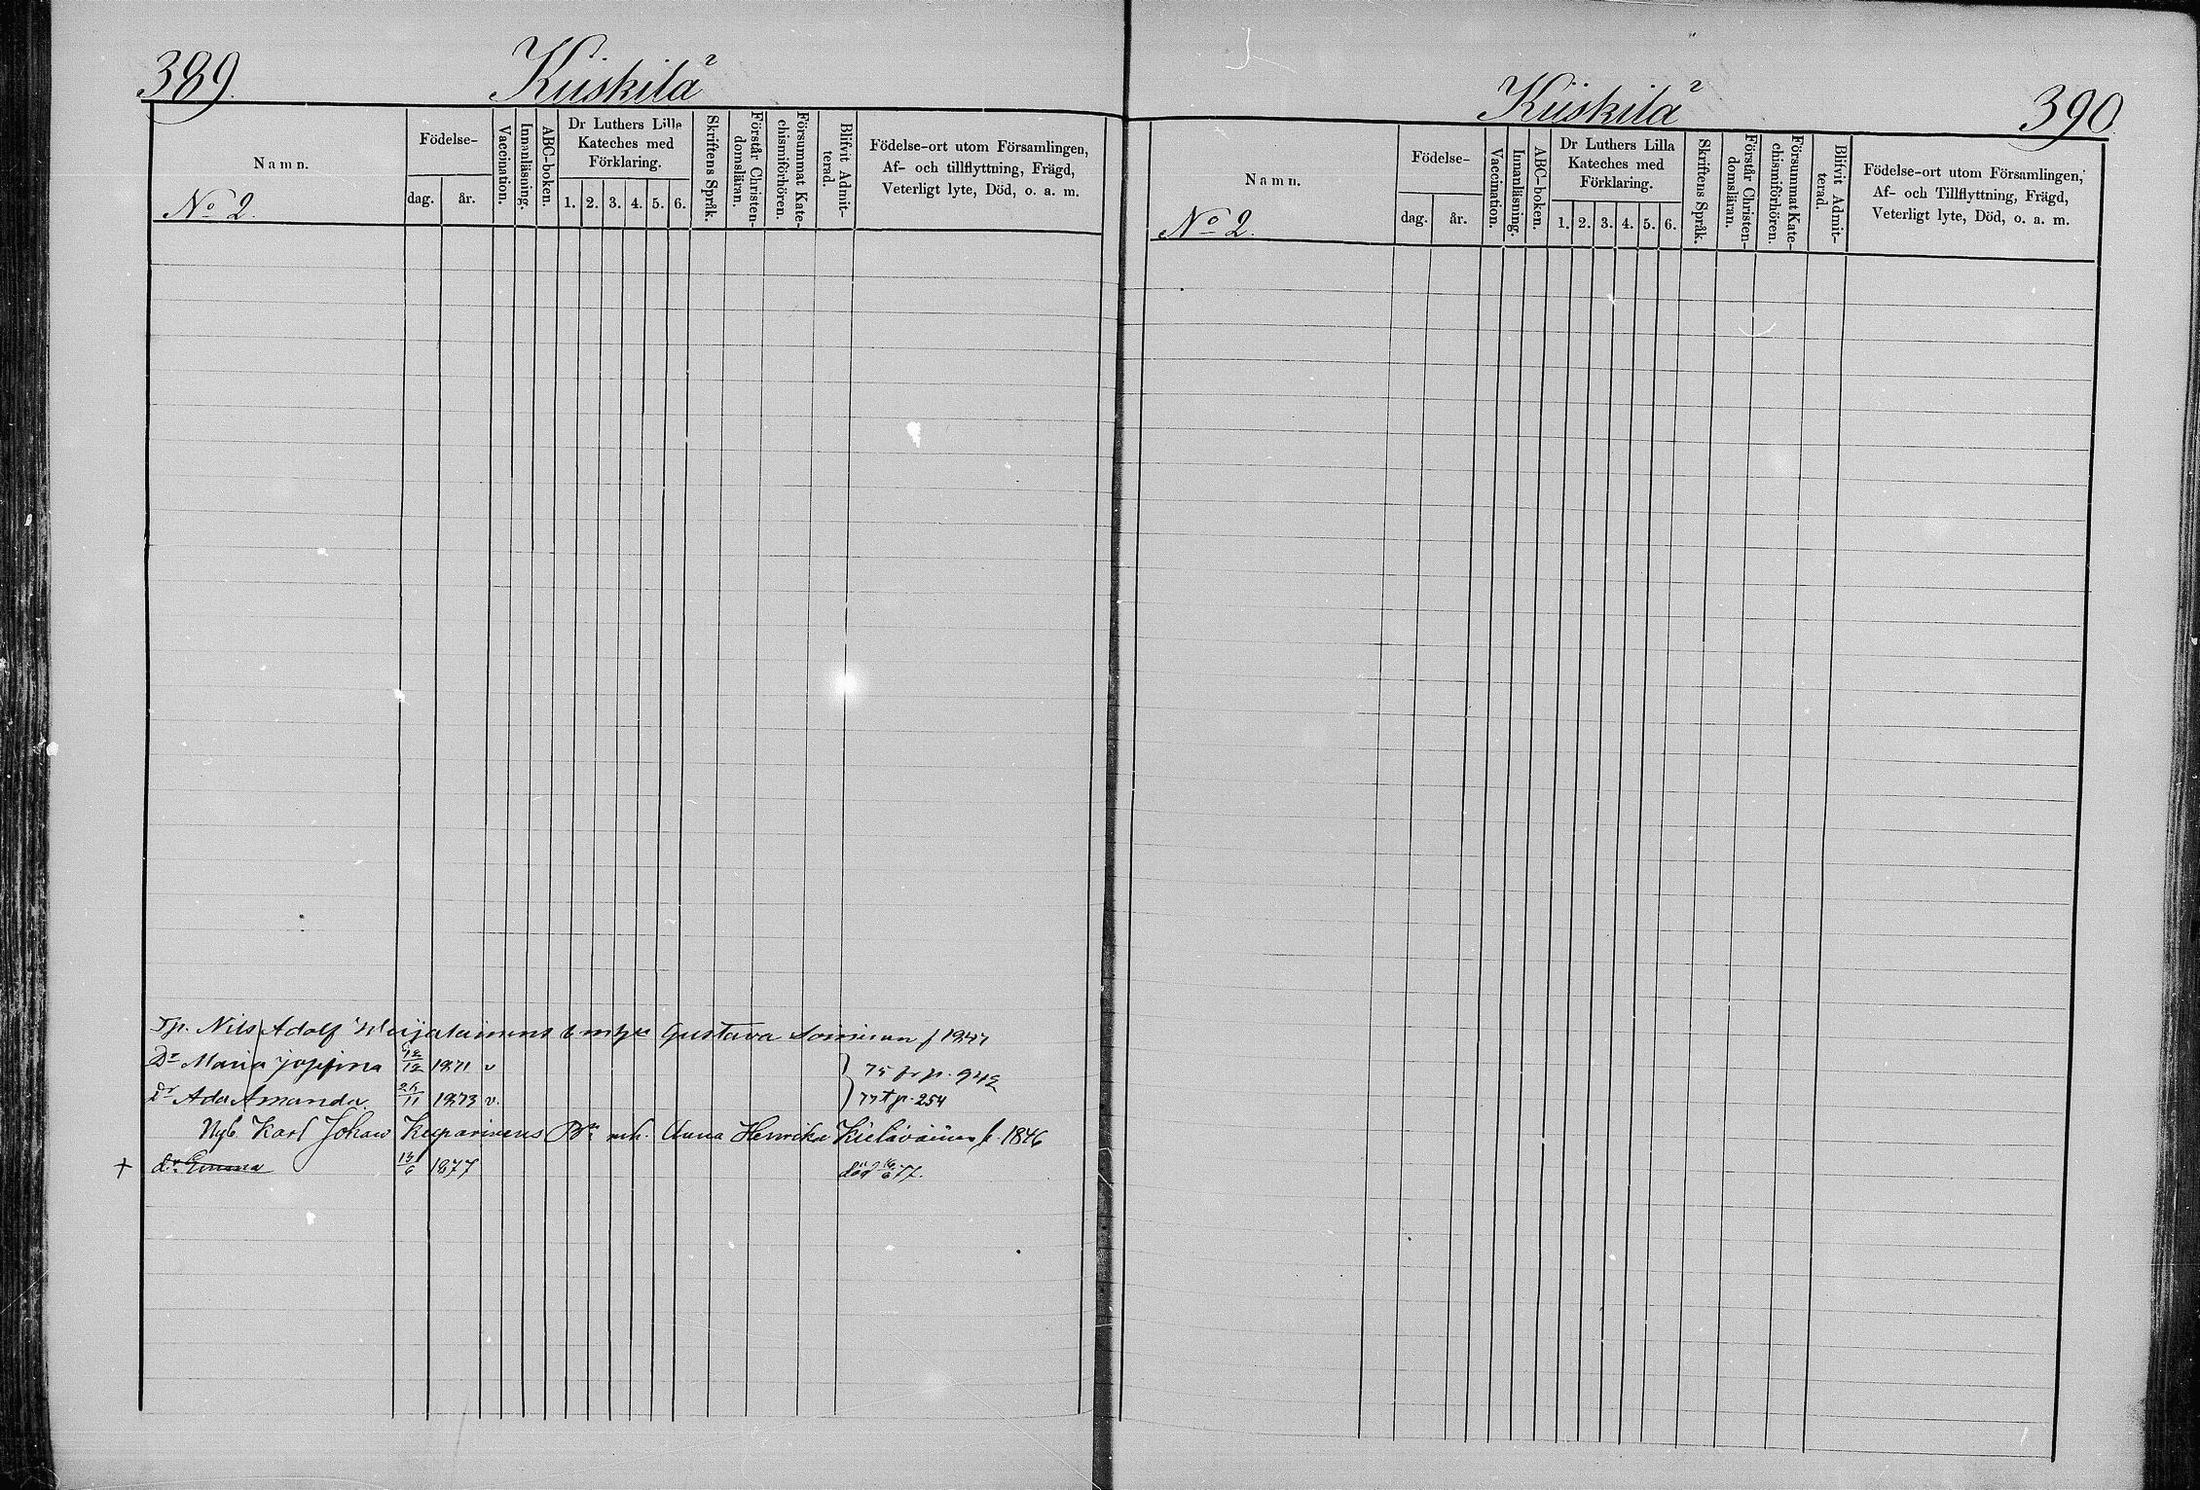 389.
Kiiskilä
Namn.
Födelse-
dag.
år.
Vaccination.
Innanläsning.
ABC-boken.
Dr Luthers Lilla
Kateches med
Förklaring.
1. 2. 3. 4. 5. 6.
Skriftens Språk.
Förstår Christen-
domsläran.
Försummat Kate-
chismiförhören.
Blifvit Admit-
terad.
Födelse-ort utom Församlingen,
Af- och tillflyttning, Frägd,
Veterligt lyte, Död, o. a. m.
No 2.
Nils Adolf Gustava f 1847
Dr Maria Josefina 1871 v 75 fr p.
dr Ada Amanda 1873 v. 77 t p. 254
Karl Johan Anna Henrika f. 1846
† dr Emma 13/6 1877 död 16/6 77.
Kiiskilä
390.
Namn.
Födelse-
dag.
år.
Vaccination.
Innanläsning.
ABC-boken.
Dr Luthers Lilla
Kateches med
Förklaring.
1. 2. 3. 4. 5. 6.
Skriftens Språk.
Förstår Christen-
domsläran.
Försummat Kate-
chismiförhören.
Blifvit Admit-
terad.
Födelse-ort utom Församlingen,
Af- och Tillflyttning, Frägd,
Veterligt lyte, Död, o. a. m.
No 2.